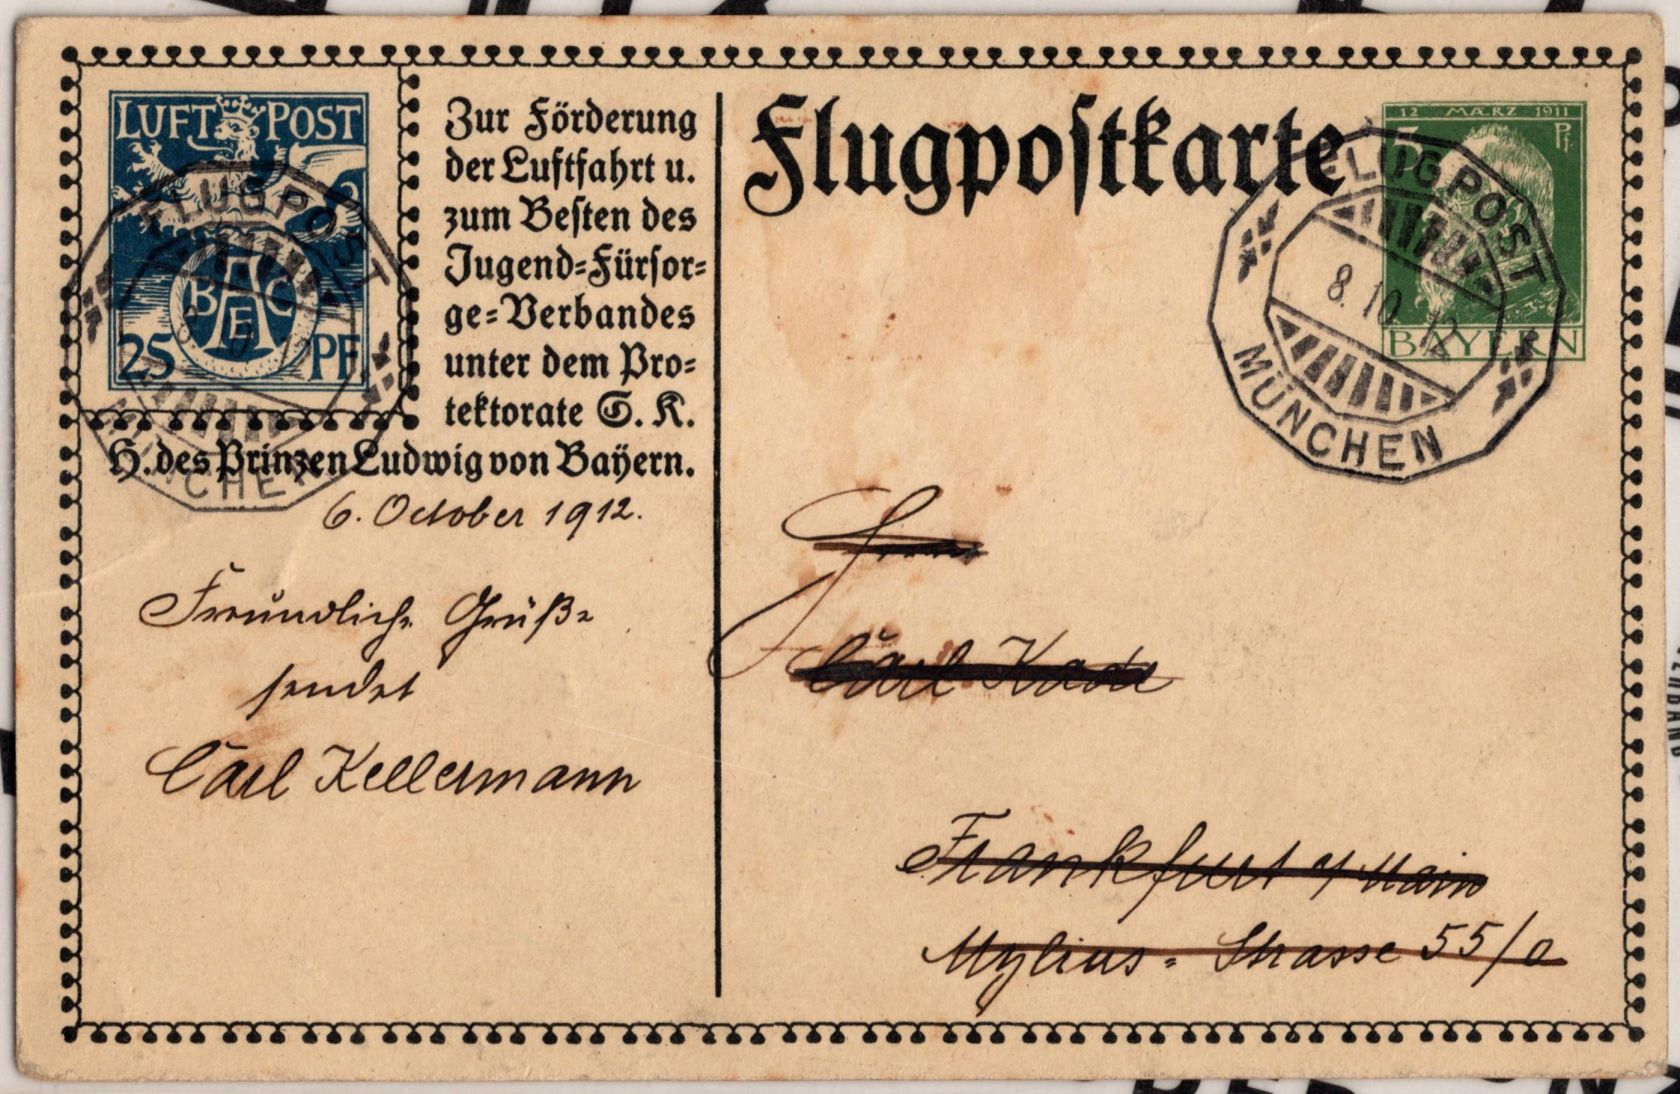 LUFT POST
BAEC
25 PF.
Zur Förderung
der Luftfahrt u.
zum Besten des
Jugend=Fürsor=
ge=Verbandes
unter dem Pro=
tektorate S. K.
H. des Prinzen Ludwig von Bayern.
FLUGPOST
MÜNCHEN
6. October 1912.
Freundliche Grüße
sendet
Carl Kellermann
Flugpostkarte
12 MÄRZ 1911
5 Pf.
BAYERN
FLUGPOST
8.10.12
MÜNCHEN
Herrn
Carl Kade
Frankfurt a/Main
Mylius=Strasse 55/0